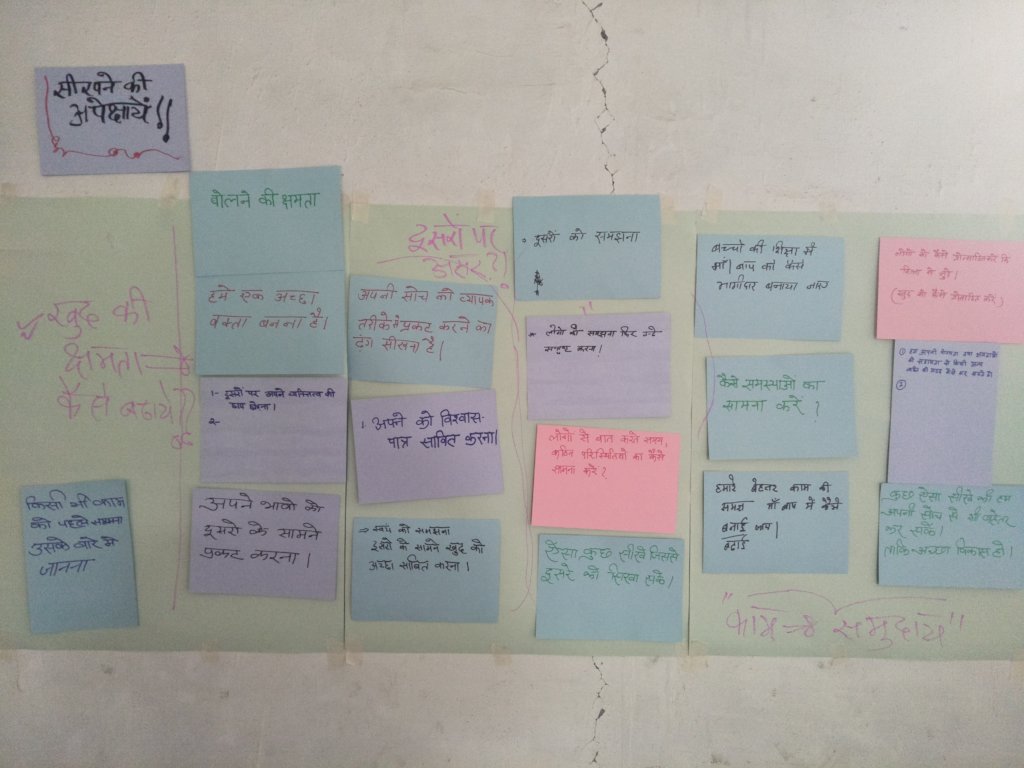 सीखने की
अपेक्षायें!!
खुद की
क्षमता
कैसे बढाये??
किसी भी काम
को पहले समझना
उसके बारे मे
जानना
बोलने की क्षमता
हमे एक अच्छा
वक्ता बनना है।
1- दूसरों पर अपने व्यक्तित्व की
छाप छोड़ना।
2-
अपने भावो को
दूसरो के सामने
प्रकट करना।
दूसरों पर
असर?
अपनी सोच को व्यापक
तरीके से प्रकट करने का
ढंग सीखना है।
1. अपने को विश्वास-
पात्र साबित करना।
→ स्वयं को समझना
दूसरो के सामने खुद को
अच्छा साबित करना।
दूसरों को समझना
लोगो को समझना फिर उन्हे
सन्तुष्ट करना।
लोगो से बात करते समय,
कठिन परिस्थितियो का कैसे
सामना करे?
ऐसा कुछ सीखे जिससे
दूसरे को सिखा सके।
बच्चो की शिक्षा में
माँ/बाप को कैसे
भागीदार बनाया जाय
कैसे समस्याओं का
सामना करें?
हमारे बेहतर काम की
समझ माँ बाप में कैसे
बनाई जाय।
बढाई
लोगो को कैसे प्रोत्साहित करें कि
शिक्षा से जुड़े।
(खुद को कैसे प्रोत्साहित करें)
① हम अपनी योग्यता तथा
की सहायता से किसी अन्य
व्यक्ति की मदद कैसे कर सकते है।
②
कुछ ऐसा सीखे की हम
अपनी सोच से भी बेहतर
कर सके।
ताकि अच्छा विकास हो।
"काम → समुदाय"